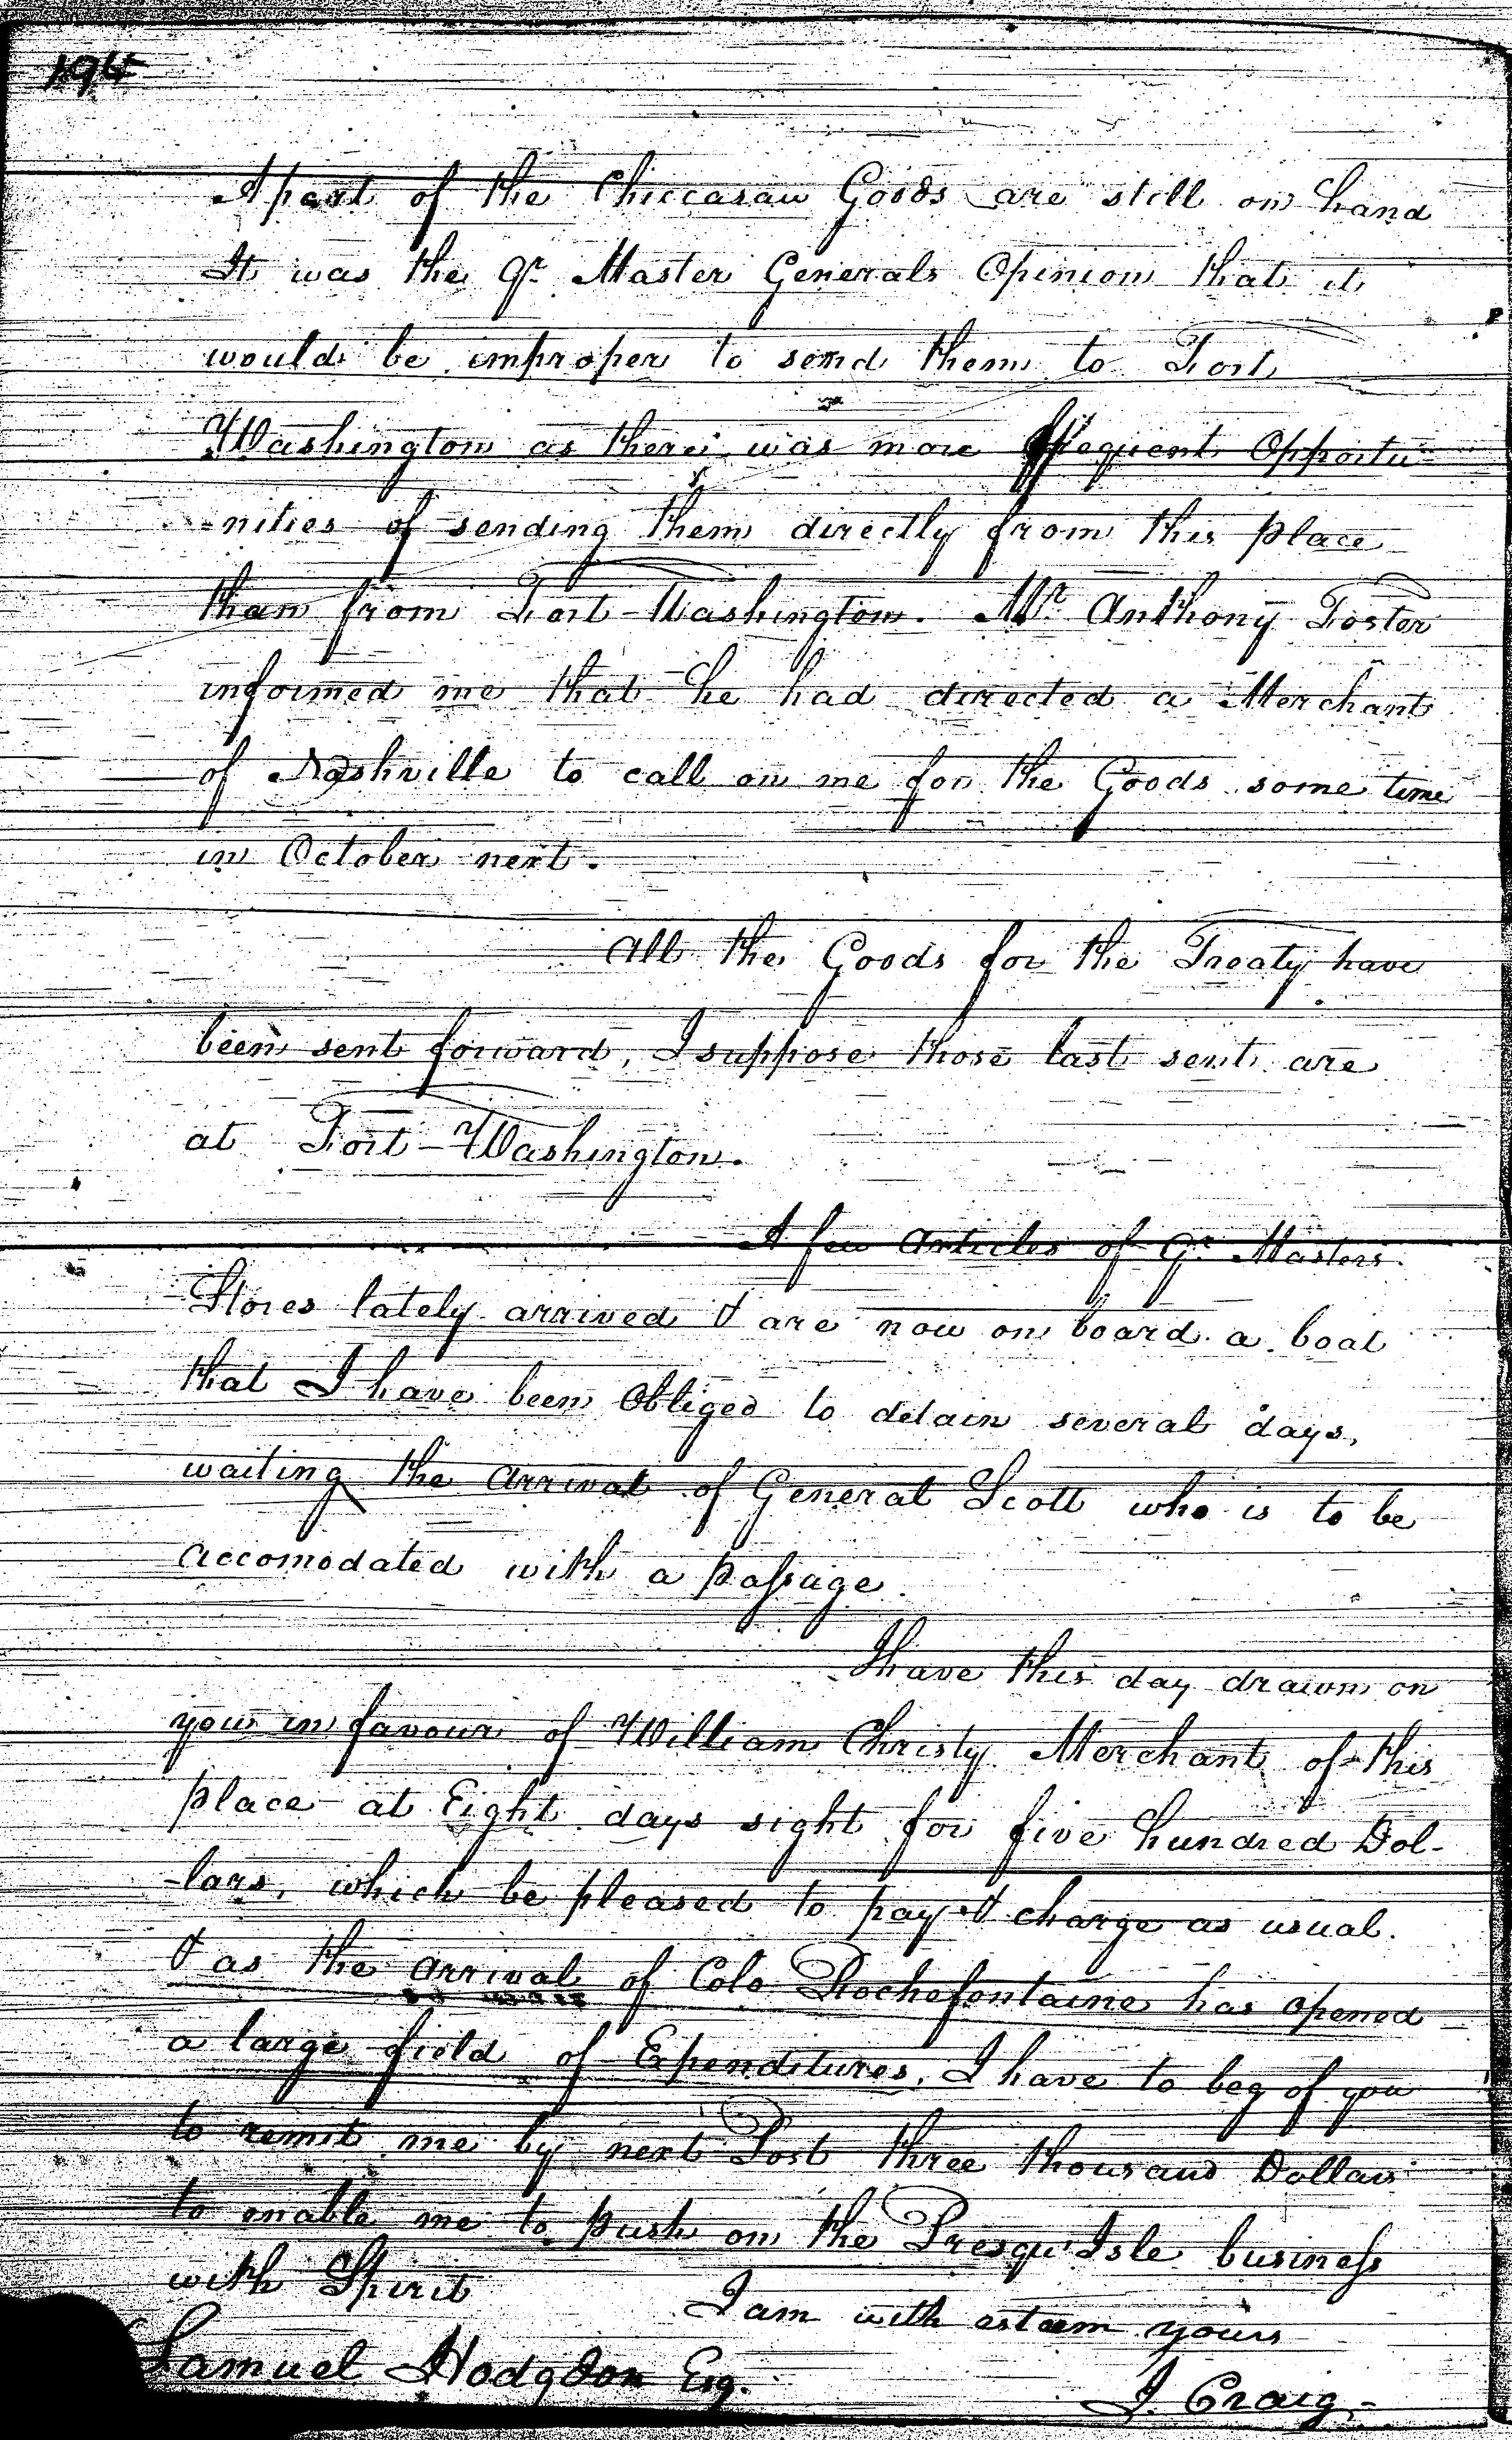 194
A part of the Chiccasaw Goods are still on hand
It was the Qr. Master Generals Opinion that it
would be improper to send them to Fort
Washington as there was more frequent Opportu-
-nities of sending them directly from this place
than from Fort-Washington. Mr. Anthony Foster
informed me that he had directed a Merchant
of Nashville to call on me for the Goods some time
in October next.
All the Goods for the Treaty have
been sent forward, I suppose those last sent are
at Fort-Washington.
A few articles of Qr. Masters
Stores lately arrived & are now on board a boat
that I have been Obliged to detain several days,
waiting the arrival of General Scott who is to be
accomodated with a passage.
I have this day drawn on
you in favour of William Christy Merchant of this
place at Eight days sight for five hundred Dol-
-lars, which be pleased to pay & charge as usual.
& as the arrival of Colo Rochefontaine has opened
a large field of Expenditures, I have to beg of you
to remit me by next Post three thousand Dollars
to enable me to push on the Presqu'Isle business
with Spirit
I am with esteem yours
Samuel Hodgdon Esq.
I. Craig-